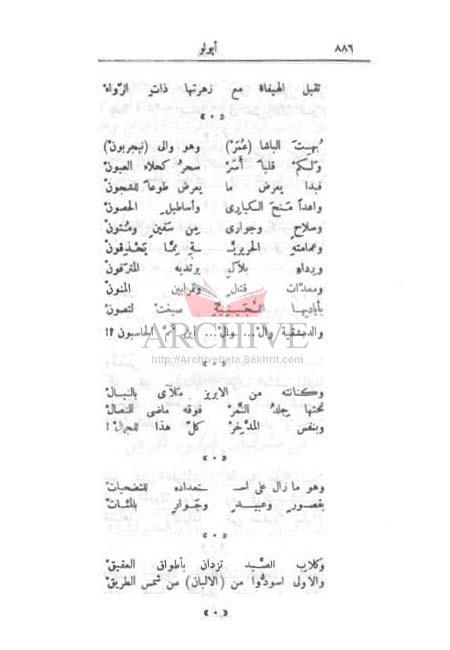 ٨٨٦ أبولو
تقبل الهيفاءُ مع زهرتها ذات الرُّواءْ
« ٠ »
بُهِيتَ الباشا (عُمَرْ) وهو والى (نيجربون)
ولكمْ قلباً أَسَرْ سحرُ كحلاء العيونْ
فبدا يعرض ما يعرض طوعاً للشجونْ
واعداً مَنحَ الكبارى وأساطيل الحصونْ
وسلاحٍ وجوارى من سفينٍ ومُتونْ
وعمامته الحريريـ ـة ممَّا يَتحذقونْ
ورداء بلآلٍ يرتديه المترفونْ
ومعدّات قتالٍ وقرابين المنونْ
بأياديها صيغت لتصونْ
والدمشقية وال... وال... أين هم الحاسبون ؟!
« ٠ »
وكنانته من الابريز ملآى بالنبالْ
تحتها جلدُ النَّمرْ فوقه ماضى النصالْ
وبنفس المدَّخِرْ كلّ هذا للجمال!
« ٠ »
وهو ما زال على اسـ ـتعداده للتضحياتْ
بقصورٍ وعبيدٍ وجَوارٍ بالمئاتْ
« ٠ »
وكلاب الصَّيد تزدان بأطواق العقيقْ
والاولى اسودُّوا من (الالبان) من شمس الطريقْ
« ٠ »
ARCHIVE
http://Archivebeta.Sakhrit.com